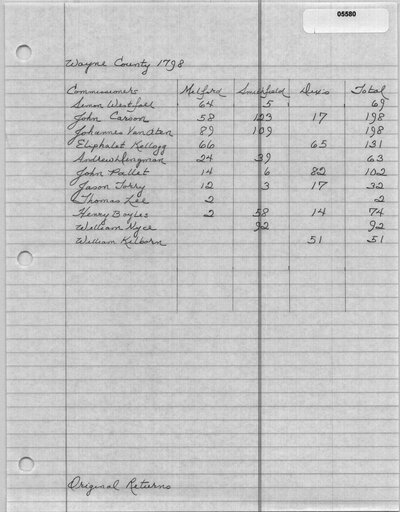 05580
Wayne County 1798
Commissioners Milford Smithfield Dix's Total
Simon Westfall 64 5 69
John Carson 58 123 17 198
Johannes VanAtan 89 109 198
Eliphalet Kellogg 66 65 131
Andrew Dingman 24 39 63
John Pallet 14 6 82 102
Jason Torry 12 3 17 32
Thomas Lee 2 2
Henry Boyles 2 58 14 74
William Nyce 92 92
William Kilborn 51 51
Original Returns